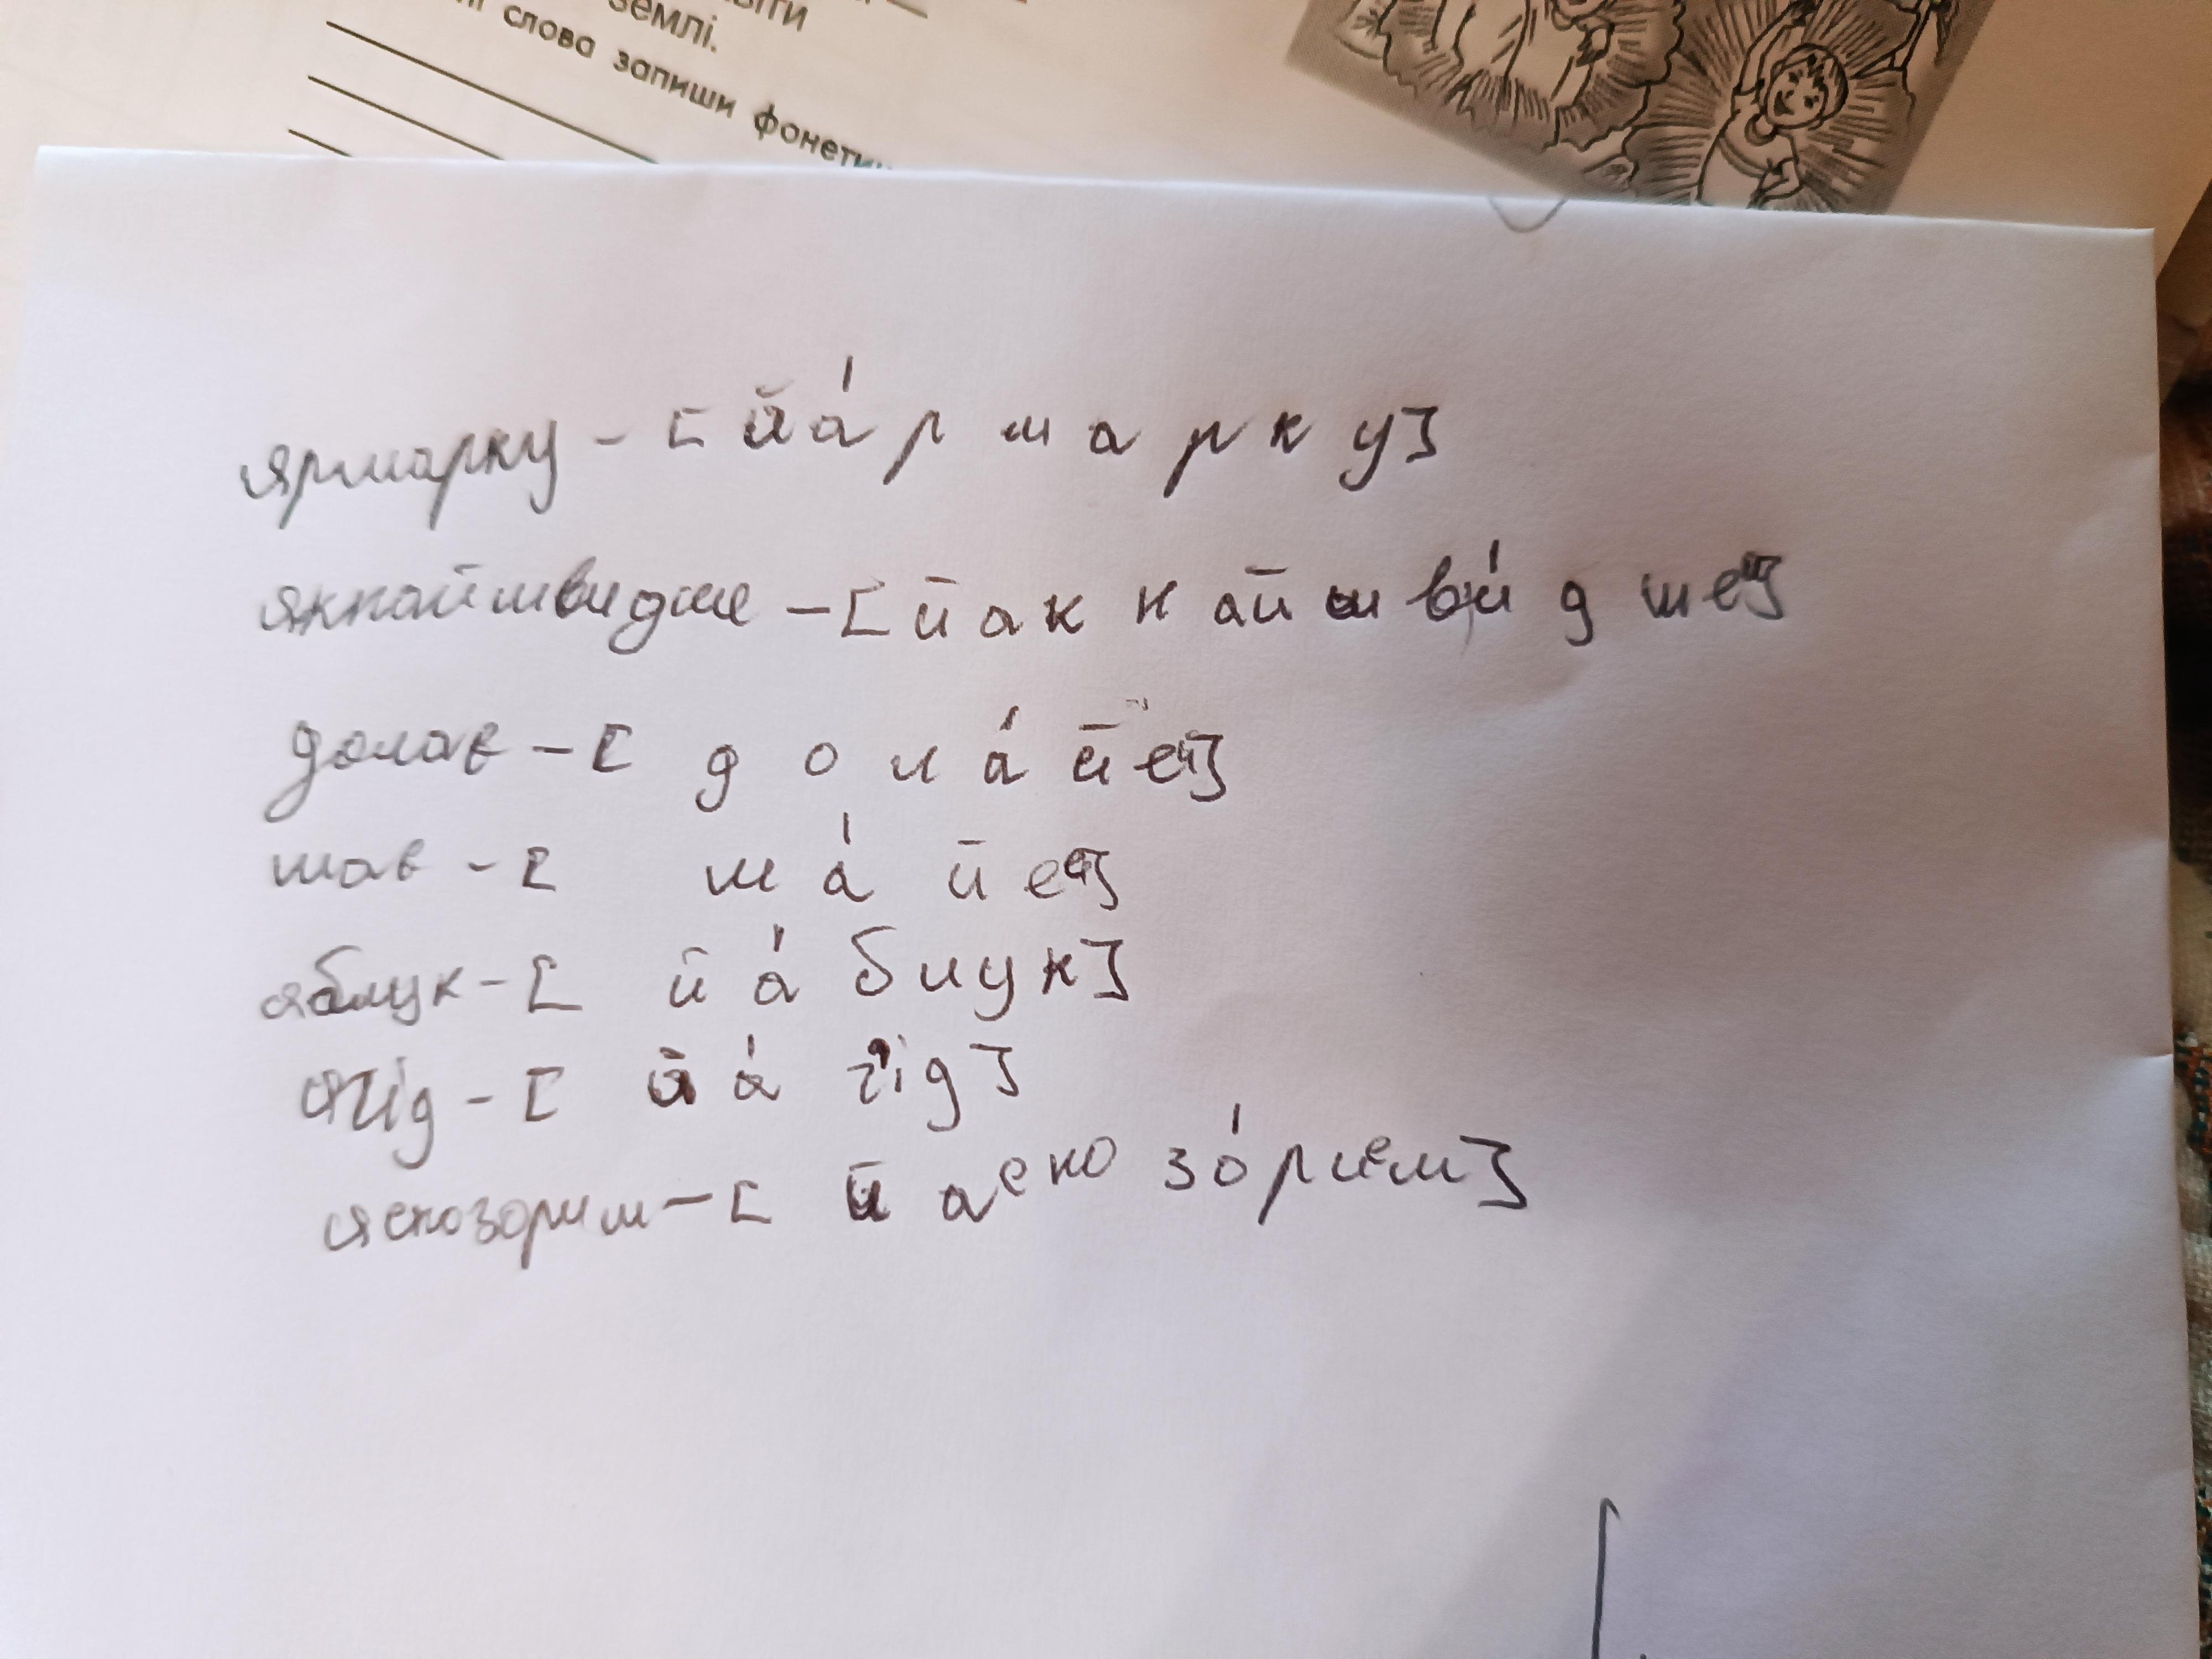 віти
землі.
слова запиши фонетич
ярмарку - [йа́рмарку]
якнайшвидше - [йакнайшви́дшеᴻ]
долає - [дола́йеᴻ]
має - [ма́йеᴻ]
яблук - [йа́блук]
ягід - [йа́г'ід]
яснозорим - [йаснозо́риᵉм]